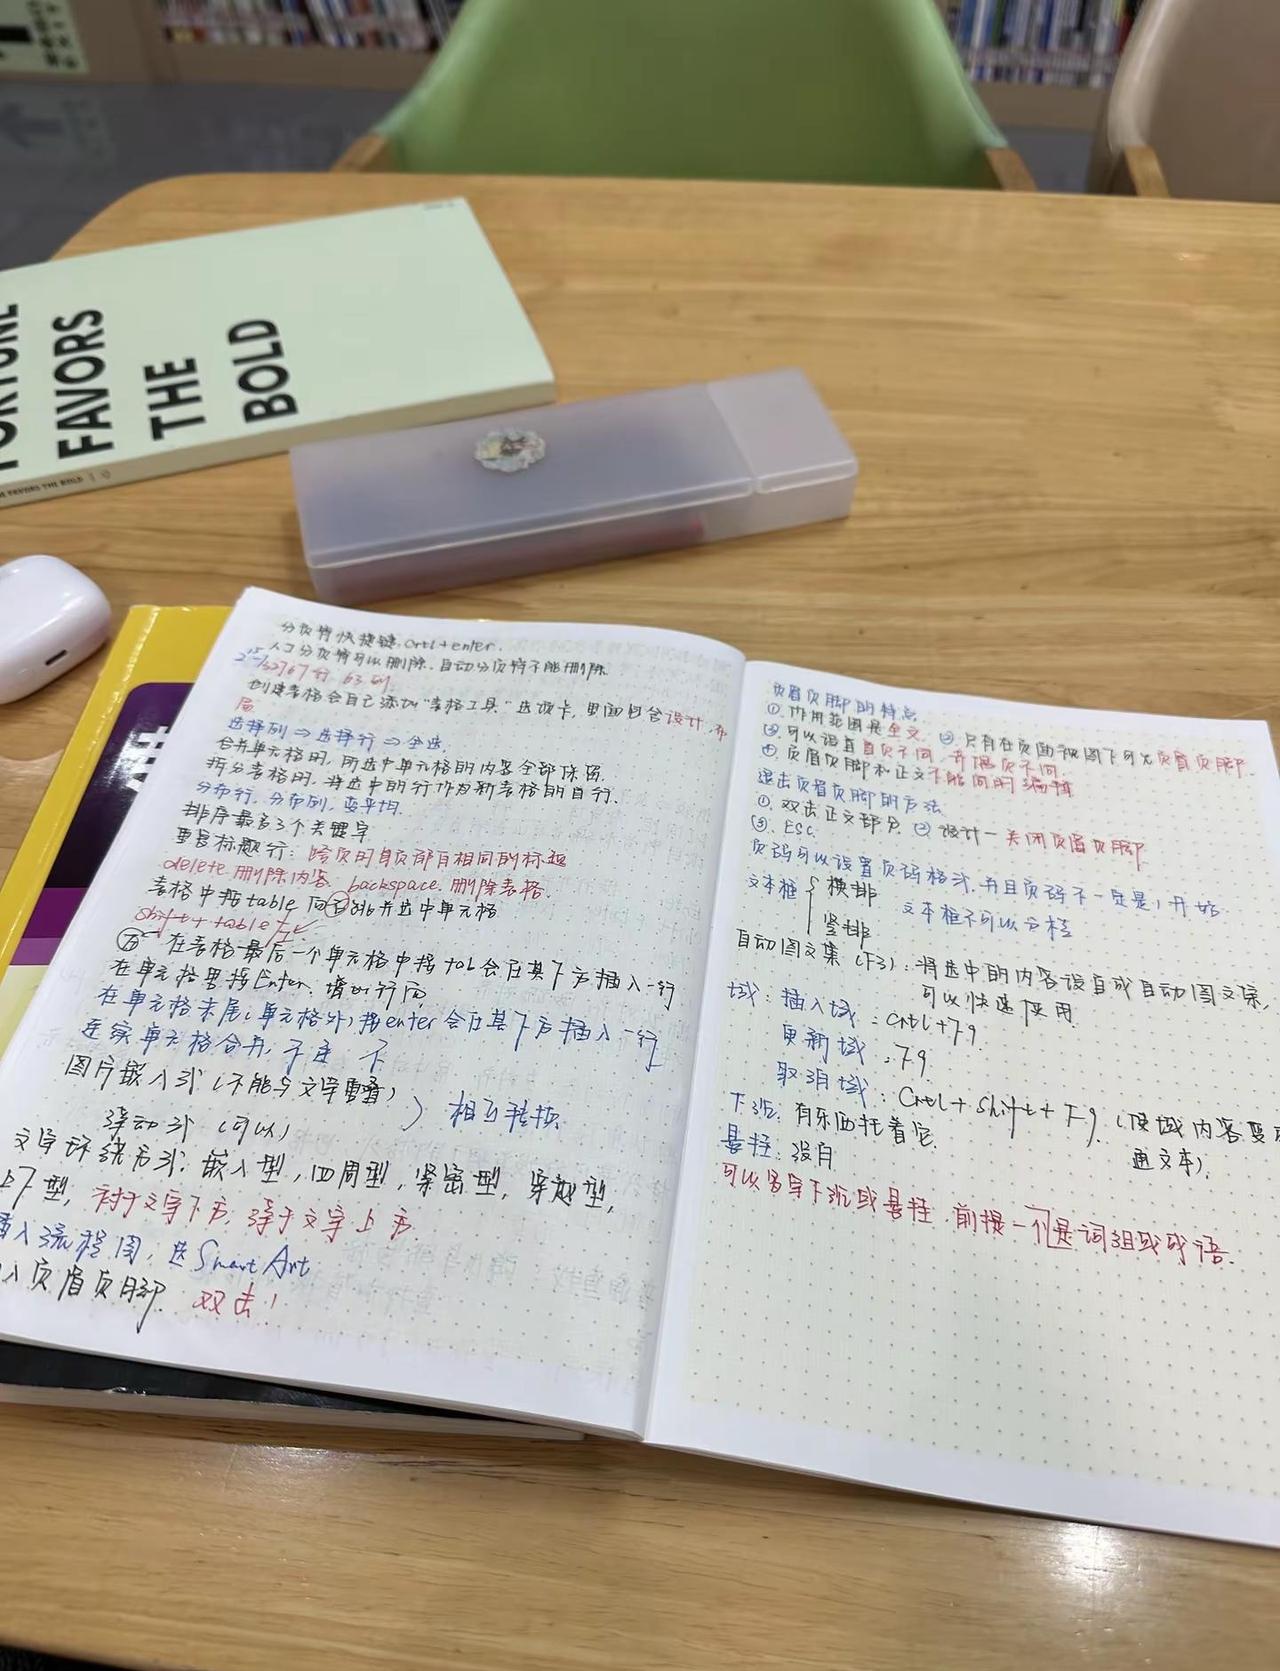 FAVORS
THE
BOLD
FAVORS THE BOLD
分页符快捷键, Crtl+enter.
人工分页符可以删除, 自动分页符不能删除
2¹⁵-1 32767行 63列.
创建表格会自己添加"表格工具"选项卡, 里面包含设计, 布
局
选择列⇒选择行⇒全选.
合并单元格时, 所选中单元格的内容全部保留.
拆分表格时, 将选中的行作为新表格的首行.
分布行, 分布列, 变平均.
排序最多3个关键字
重复标题行: 跨页时首页都有相同的标题
delete 删除内容. backspace. 删除表格.
表格中按table 向右跳并选中单元格
shift+table 左
在表格最后一个单元格中按tab会在其下方插入一行
在单元格里按Enter, 增加行高
在单元格末尾(单元格外)按enter会在其下方插入一行
连续单元格合并,
图片嵌入式(不能与文字重叠)
浮动式(可以)
相互转换
文字环绕方式: 嵌入型, 四周型, 紧密型, 穿越型,
上下型, 衬于文字下方, 浮于文字上方.
插入流程图, 选SmartArt
入页眉页脚. 双击!
页眉页脚的特点
①. 作用范围是全文. ②. 只有在页面视图下可见页眉页脚.
③. 可以设置首页不同, 奇偶页不同.
④. 页眉页脚和正文不能同时编辑
退出页眉页脚的方法
①. 双击正文部分. ② 设计－关闭页眉页脚
③. ESC.
页码可以设置页码格式, 并且页码不一定是1开始
文本框{横排
竖排
文本框不可以分栏
自动图文集(F3): 将选中的内容设自成自动图文集,
可以快速使用.
域: 插入域: Crtl+F9.
更新域: F9
取消域: Crtl+Shift+F9. (使域内容变
通文本).
下沉: 有东西托着它.
悬挂: 没有
可以多字下沉或悬挂, 前提一们是词组或成语.